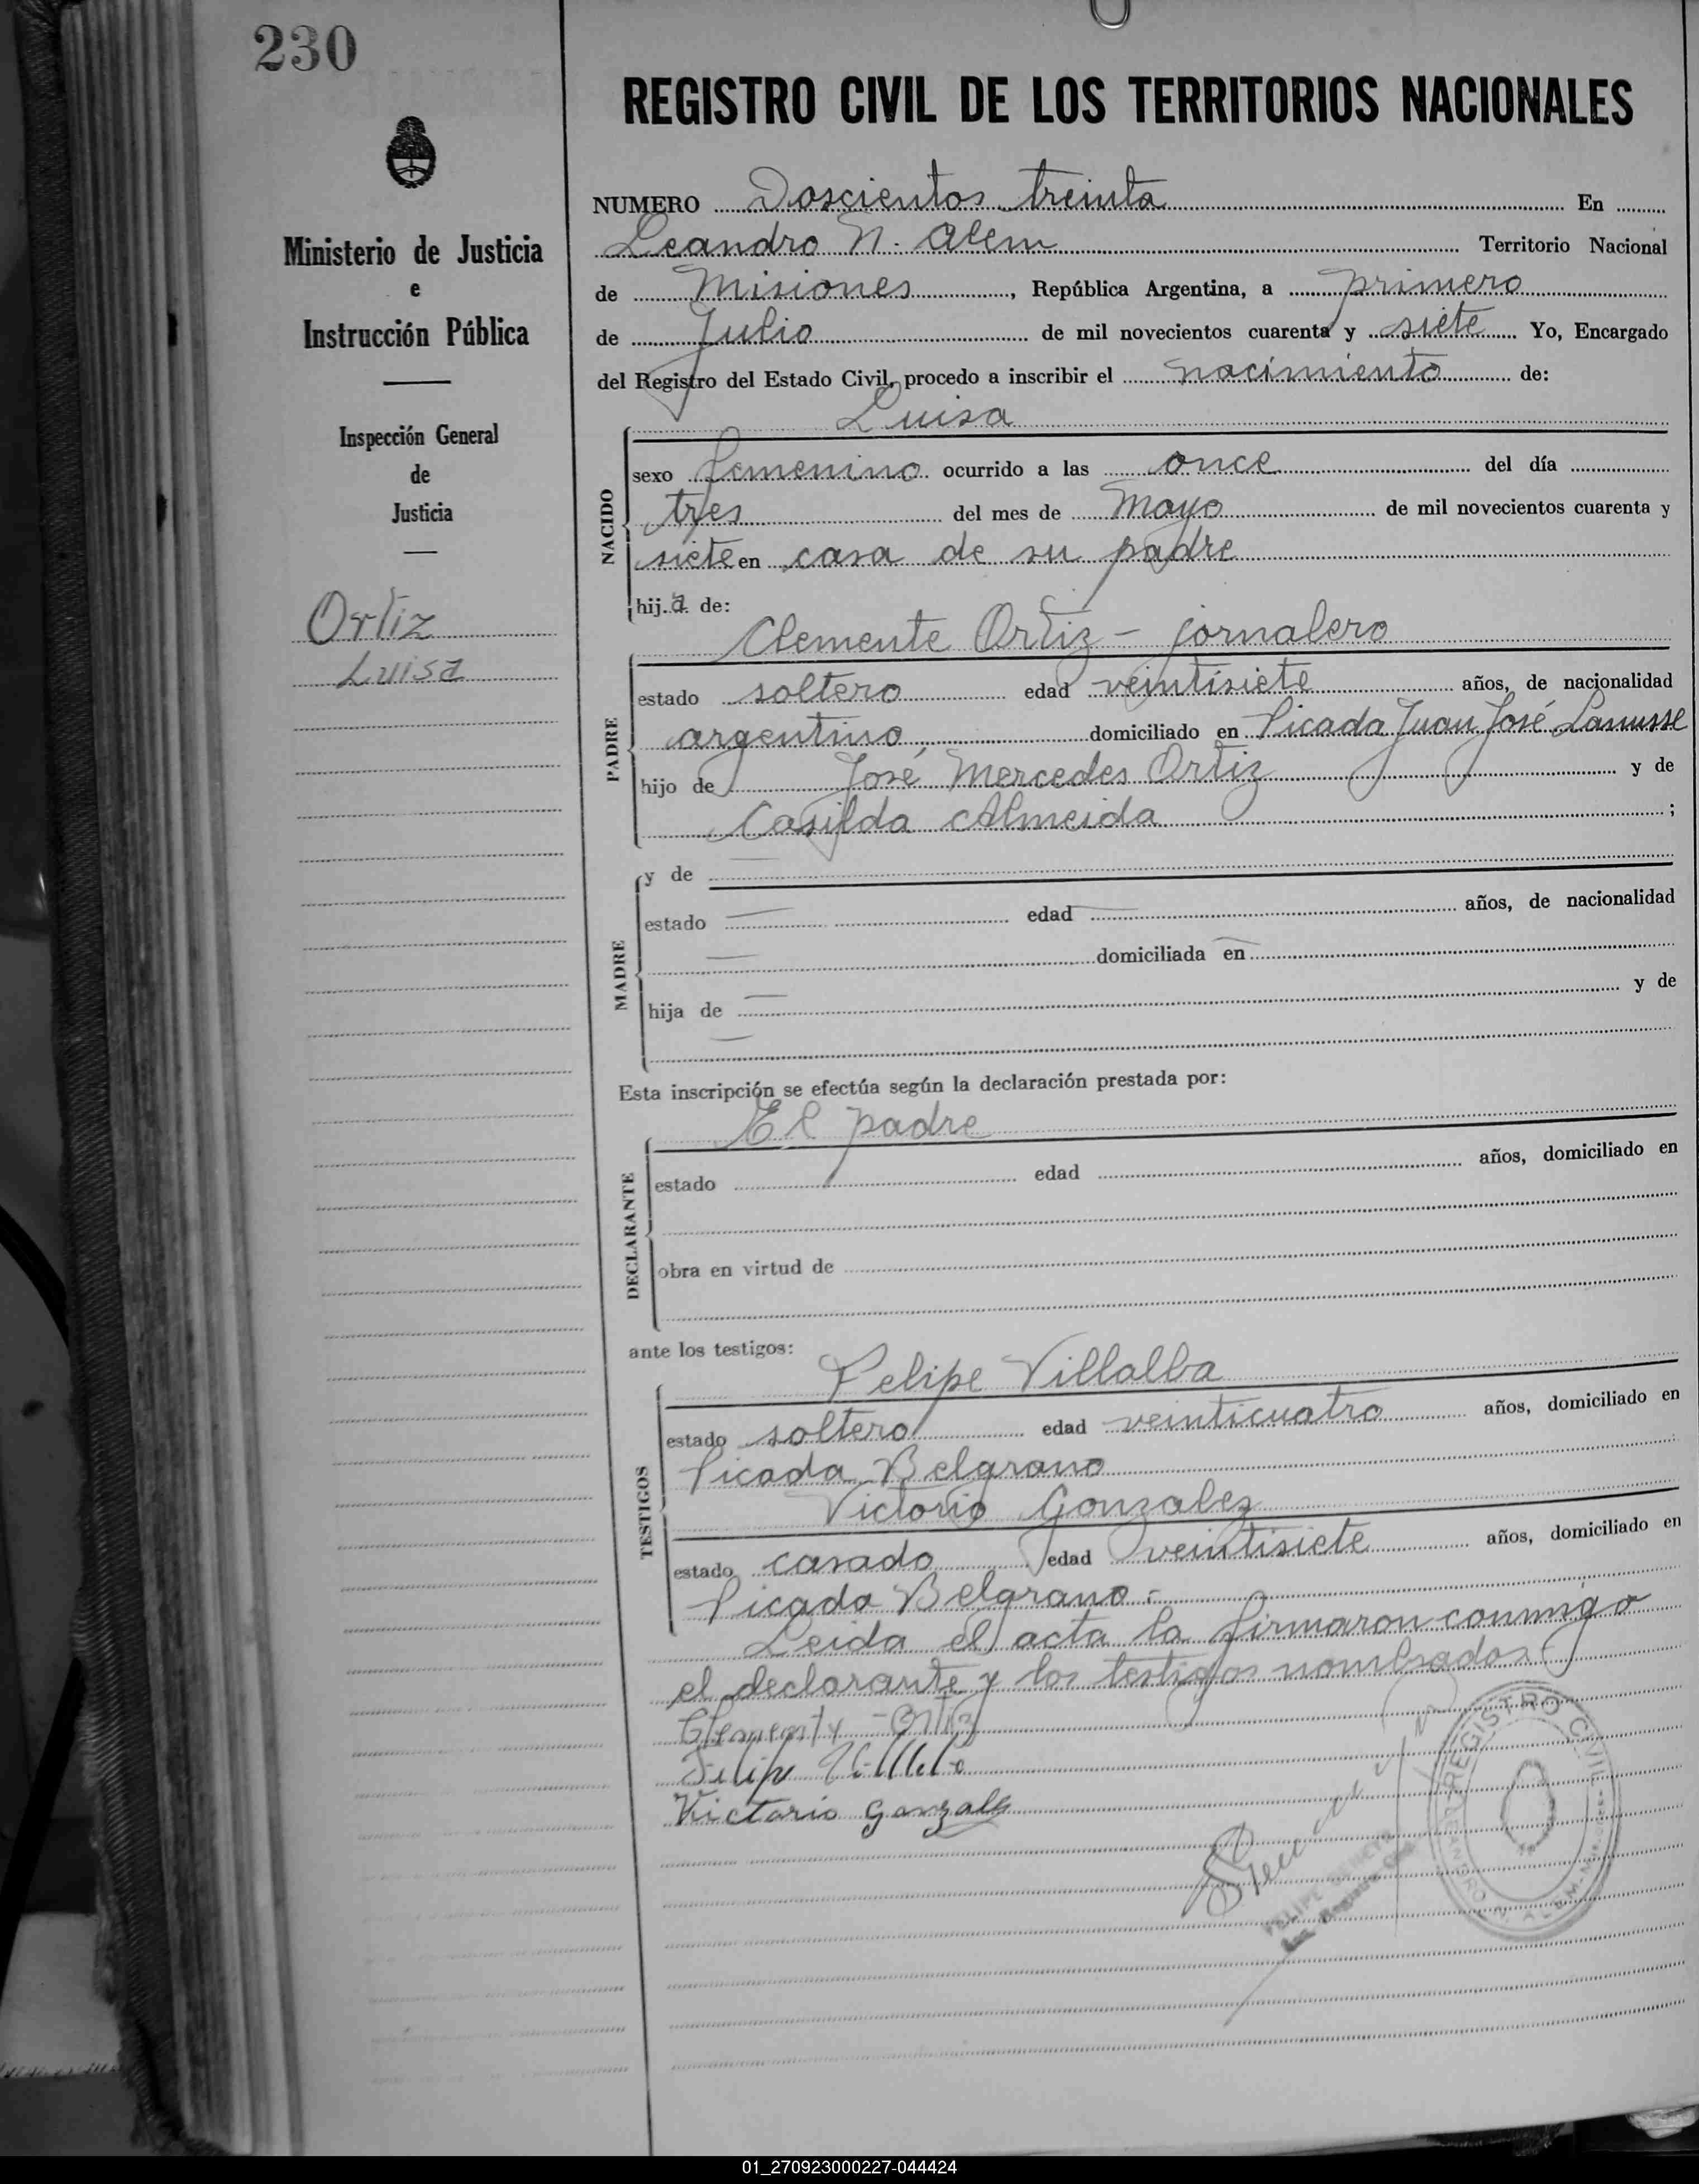 230
REGISTRO CIVIL DE LOS TERRITORIOS NACIONALES
Ministerio de Justicia
e
Instrucción Pública
Inspección General
de
Justicia
Ortiz
Luisa
NUMERO Doscientos treinta En
Leandro N. Alem Territorio Nacional
de Misiones, República Argentina, a primero
de Julio de mil novecientos cuarenta y siete Yo, Encargado
del Registro del Estado Civil, procedo a inscribir el nacimiento de:
Luisa
NACIDO
sexo femenino ocurrido a las once del día
tres del mes de Mayo de mil novecientos cuarenta y
siete en casa de su padre
hija de:
Clemente Ortiz - jornalero
PADRE
estado soltero edad veintisiete años, de nacionalidad
argentino, domiciliado en Picada Juan José Lanusse
hijo de José Mercedes Ortiz y de
Casilda Almeida ;
y de —
MADRE
estado — edad — años, de nacionalidad
— domiciliada en —
hija de — y de
—
Esta inscripción se efectúa según la declaración prestada por:
El padre
DECLARANTE
estado edad años, domiciliado en
obra en virtud de
ante los testigos:
Felipe Villalba
TESTIGOS
estado soltero edad veinticuatro años, domiciliado en
Picada Belgrano
Victorio Gonzalez
estado casado edad veintisiete años, domiciliado en
Picada Belgrano.-
Leida el acta la firmaron conmigo
el declarante y los testigos nombrados
Ortiz
Felipe Villalba
Victorio Gonzalez
REGISTRO CIVIL
LEANDRO N. ALEM - Misiones
FELIPE
01_270923000227-044424